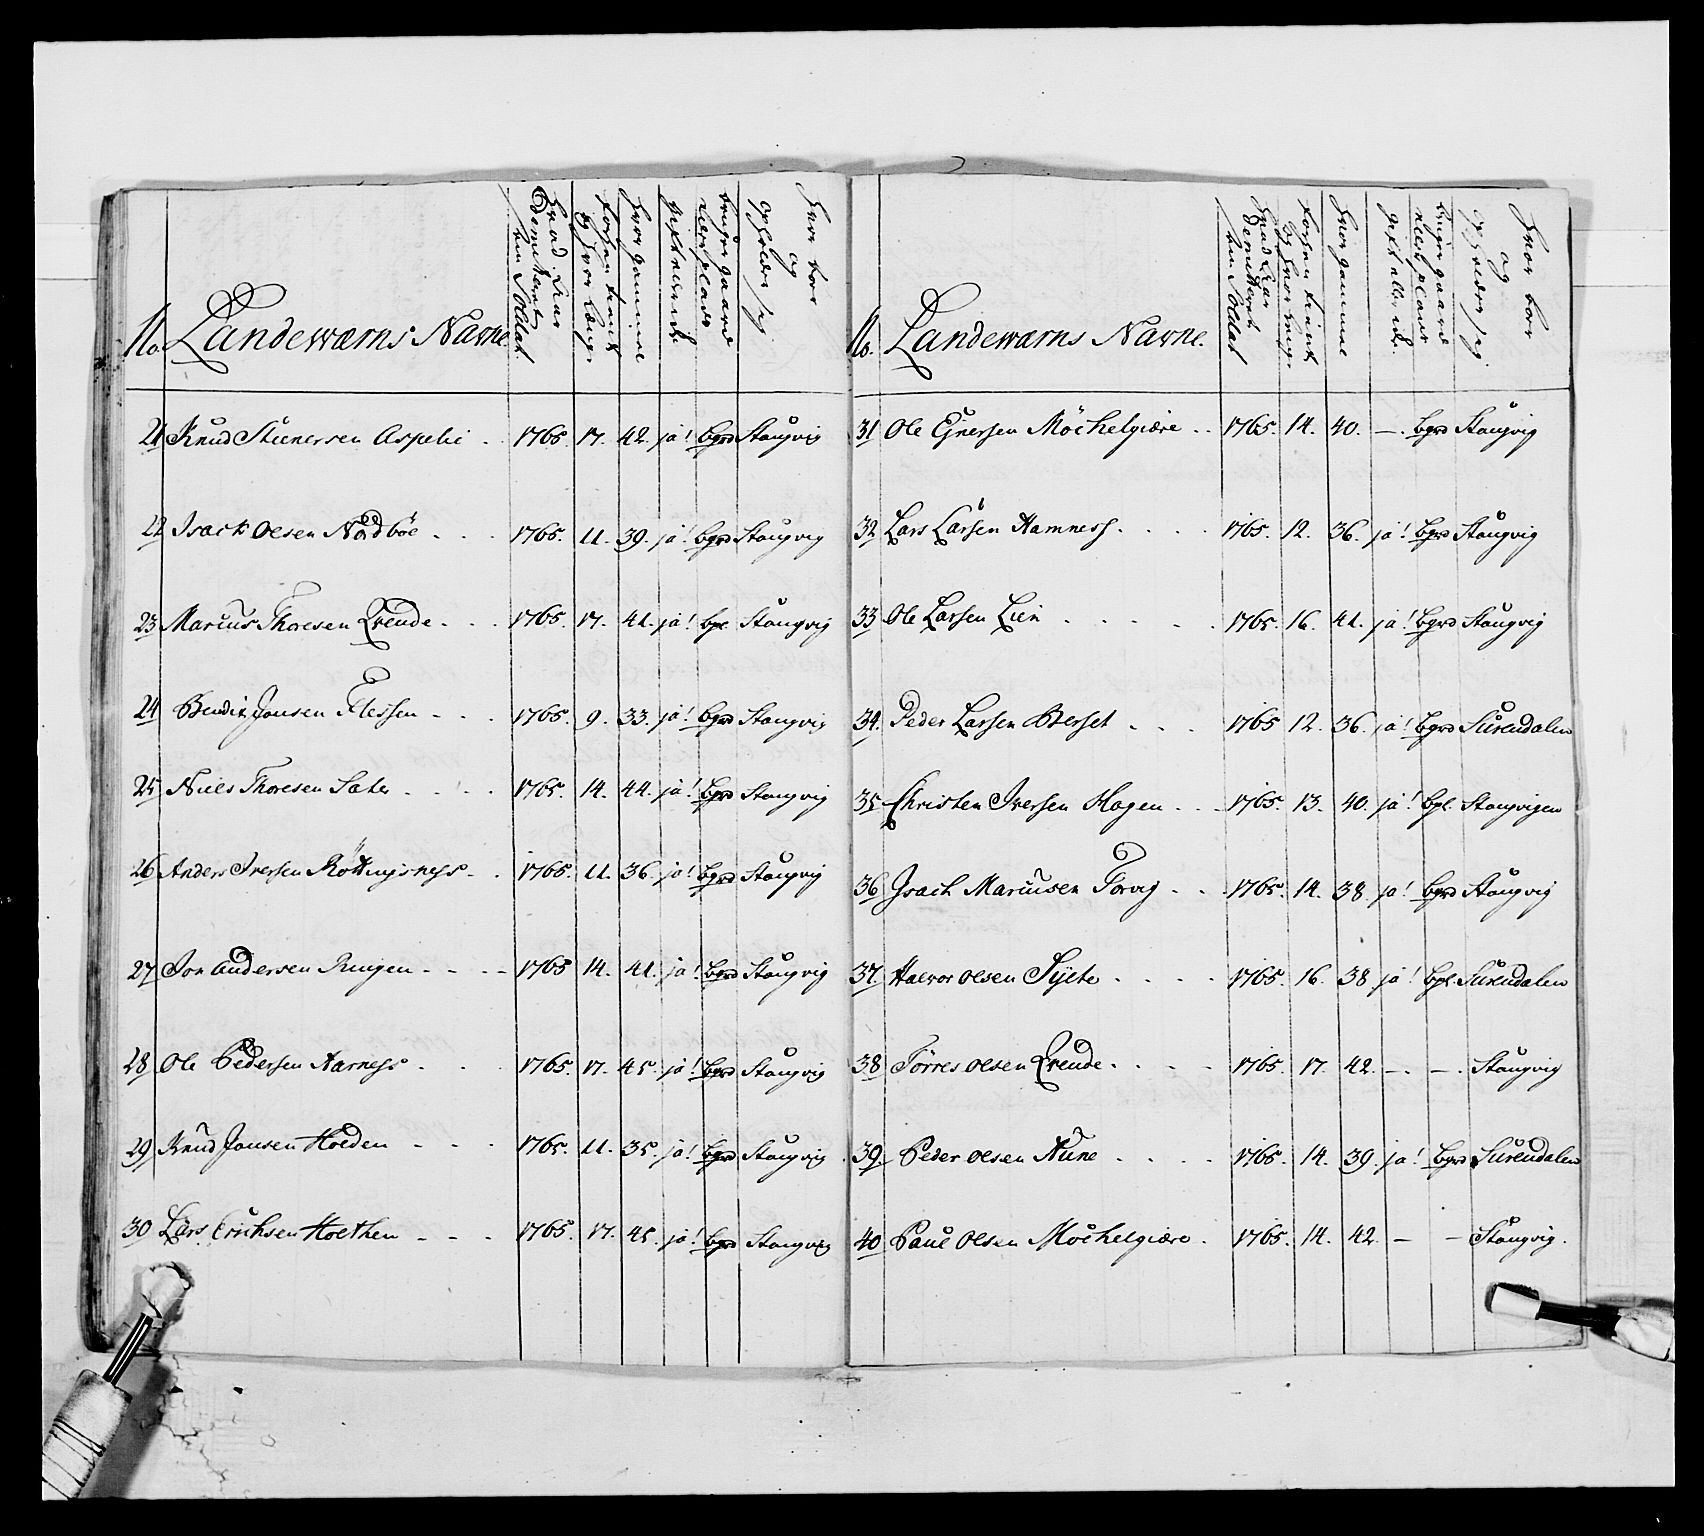 No. Landeværns Navne.
hvad Aar demitteret som Soldat
og hvor længe forhen tient
hvor gammel
gift eller ei
bruger gaard eller plads
hvor boer og opholder sig
21 Knud Steenersen Aspelie - 1765. 17. 42. ja! bgrd Stangvig
22 Isack Olsen Nordbøe - - - 1765. 11. 39. ja! bgrd Stangvig
23 Marcus Thoresen Qvende - - - 1765. 17. 41. ja! bpl. Stangvig
24 Bendix Jonsen Flessen - - - 1765. 9. 33. ja! bgrd Stangvig
25 Niels Thoresen Sæter - - - - 1765. 14. 44. ja! bgrd Stangvig
26 Anders Iversen Røttingsness - - 1765. 11. 36. ja! bgrd Stangvig
27 Jon Andersen Ringen - - - - 1765 14. 41. ja! bgrd Stangvig
28 Ole Pedersen Aarness - - - 1765. 17. 45. ja! bgrd Stangvig
29 Knud Jonsen Holden - - - 1765. 11. 35. ja! bgrd Stangvig
30 Lars Erichsen Holthen - - - 1765. 17. 45. ja! bgrd Stangvig
No. Landeværns Navne.
hvad Aar demitteret som Soldat
og hvor længe forhen tient
hvor gammel
gift eller ei
bruger gaard eller plads
hvor boer og opholder sig
31 Ole Ejnersen Möchelgiære - - 1765. 14. 40. -. bgrd Stangvig
32 Lars Larsen Hamness - - - - 1765. 12. 36. ja! bgrd Stangvig
33 Ole Larsen Lien - - - - - 1765. 16. 41. ja! bgrd Stangvig
34. Peder Larsen Berset - - - 1765 12. 36. ja! bgrd Surendalen
35 Christen Iversen Hagen - - - 1765. 13. 40. ja! bpl. Stangvigen
36 Isach Marcusen Torvig - - - 1765. 14. 38 ja! bgrd Stangvig
37. Halvor Olsen Sylte - - - - 1765. 16. 38 ja! bpl. Surendalen
38 Törres Olsen Qvende - - - - 1765. 17. 42. -. -. Stangvig
39. Peder Olsen Aune - - - - 1765. 14. 39. ja! bgrd Surendalen
40 Paul Olsen Möchelgiære - 1765. 14. 42. - - Stangvig.